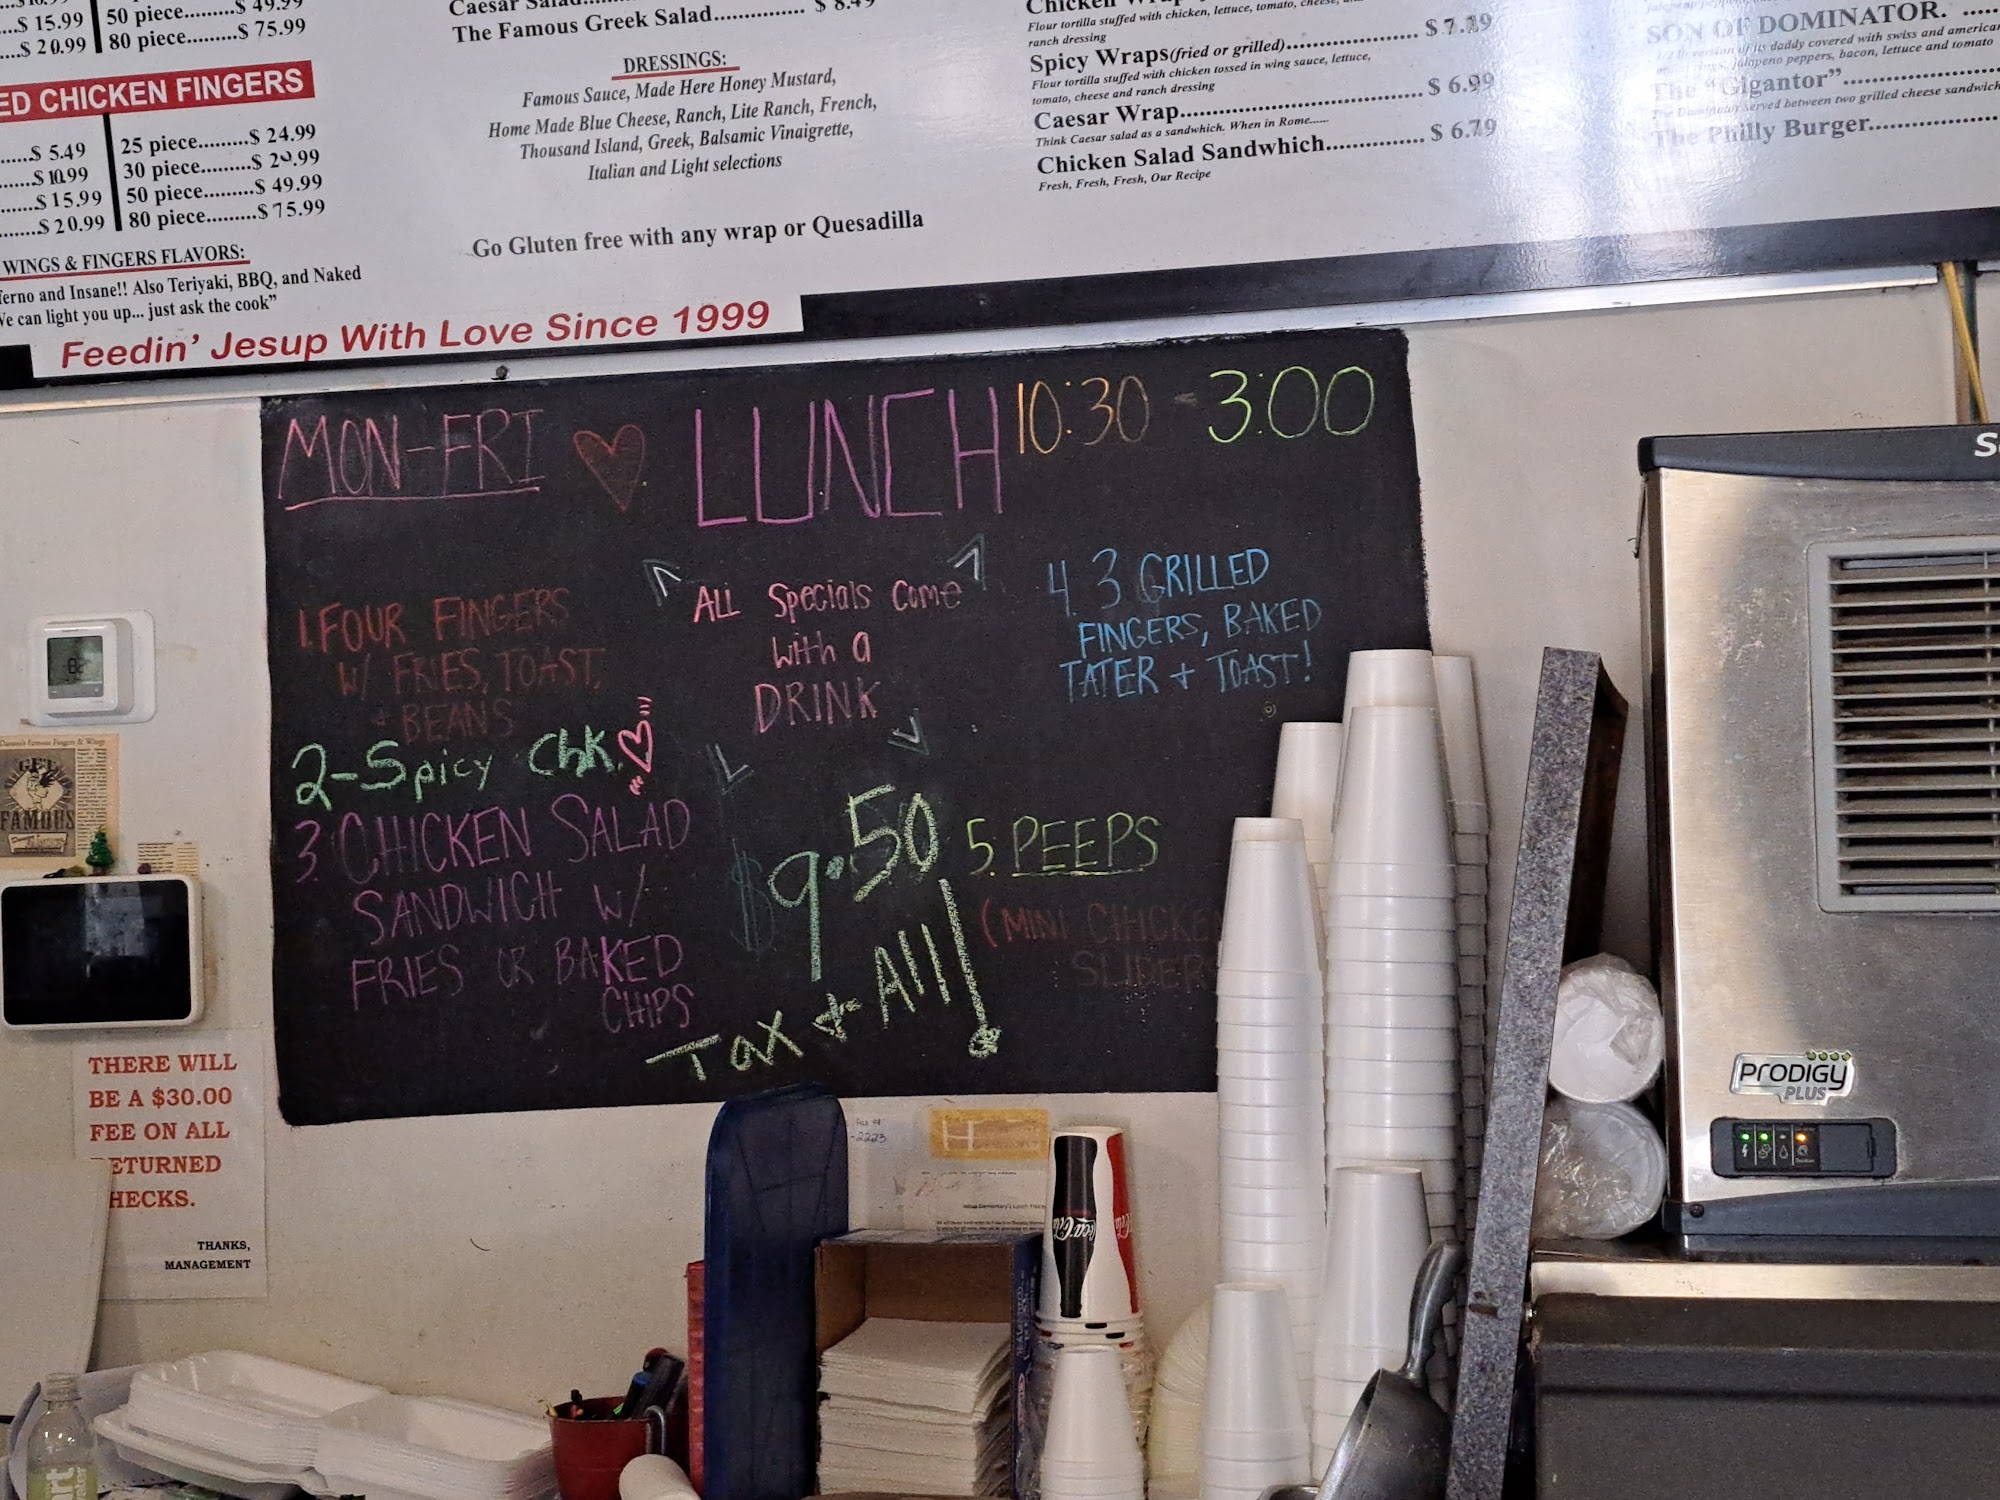 $ 15.99
$ 20.99
50 piece.........$ 49.99
80 piece.........$ 75.99
ED CHICKEN FINGERS
$ 5.49
$ 10.99
$ 15.99
$ 20.99
25 piece.........$ 24.99
30 piece.........$
50 piece.........$ 49.99
80 piece.........$ 75.99
WINGS & FINGERS FLAVORS:
and Insane!! Also Teriyaki, BBQ, and Naked
We can light you up... just ask the cook"
Feedin' Jesup With Love Since 1999
Caesar Salad
The Famous Greek Salad............... $ 8.49
DRESSINGS:
Famous Sauce, Made Here Honey Mustard,
Home Made Blue Cheese, Ranch, Lite Ranch, French,
Thousand Island, Greek, Balsamic Vinaigrette,
Italian and Light selections
Go Gluten free with any wrap or Quesadilla
Chicken Wrap
Flour tortilla stuffed with chicken, lettuce, tomato, cheese,
ranch dressing
Spicy Wraps(fried or grilled)...................... $ 7.29
Flour tortilla stuffed with chicken tossed in wing sauce, lettuce,
tomato, cheese and ranch dressing
Caesar Wrap........................................ $ 6.99
Think Caesar salad as a sandwich. When in Rome......
Chicken Salad Sandwhich............... $ 6.79
Fresh, Fresh, Fresh, Our Recipe
SON OF DOMINATOR. .....
1/2 lb version of its daddy covered with swiss and american
rings, jalapeno peppers, bacon, lettuce and tomato
The "Gigantor"..................
The Dominator served between two grilled cheese sandwich
The Philly Burger...............
MON-FRI LUNCH 10:30 - 3:00
1. FOUR FINGERS
W/ FRIES, TOAST,
+ BEANS
2-Spicy Chk.
3. CHICKEN SALAD
SANDWICH W/
FRIES OR BAKED
CHIPS
ALL Specials Come
with a
DRINK
$9.50
Tax & All!
4. 3 GRILLED
FINGERS, BAKED
TATER + TOAST!
5. PEEPS
(MINI CHICKEN
SLIDER
GET
FAMOUS
THERE WILL
BE A $30.00
FEE ON ALL
RETURNED
CHECKS.
THANKS,
MANAGEMENT
PRODIGY
PLUS
Coca-Cola